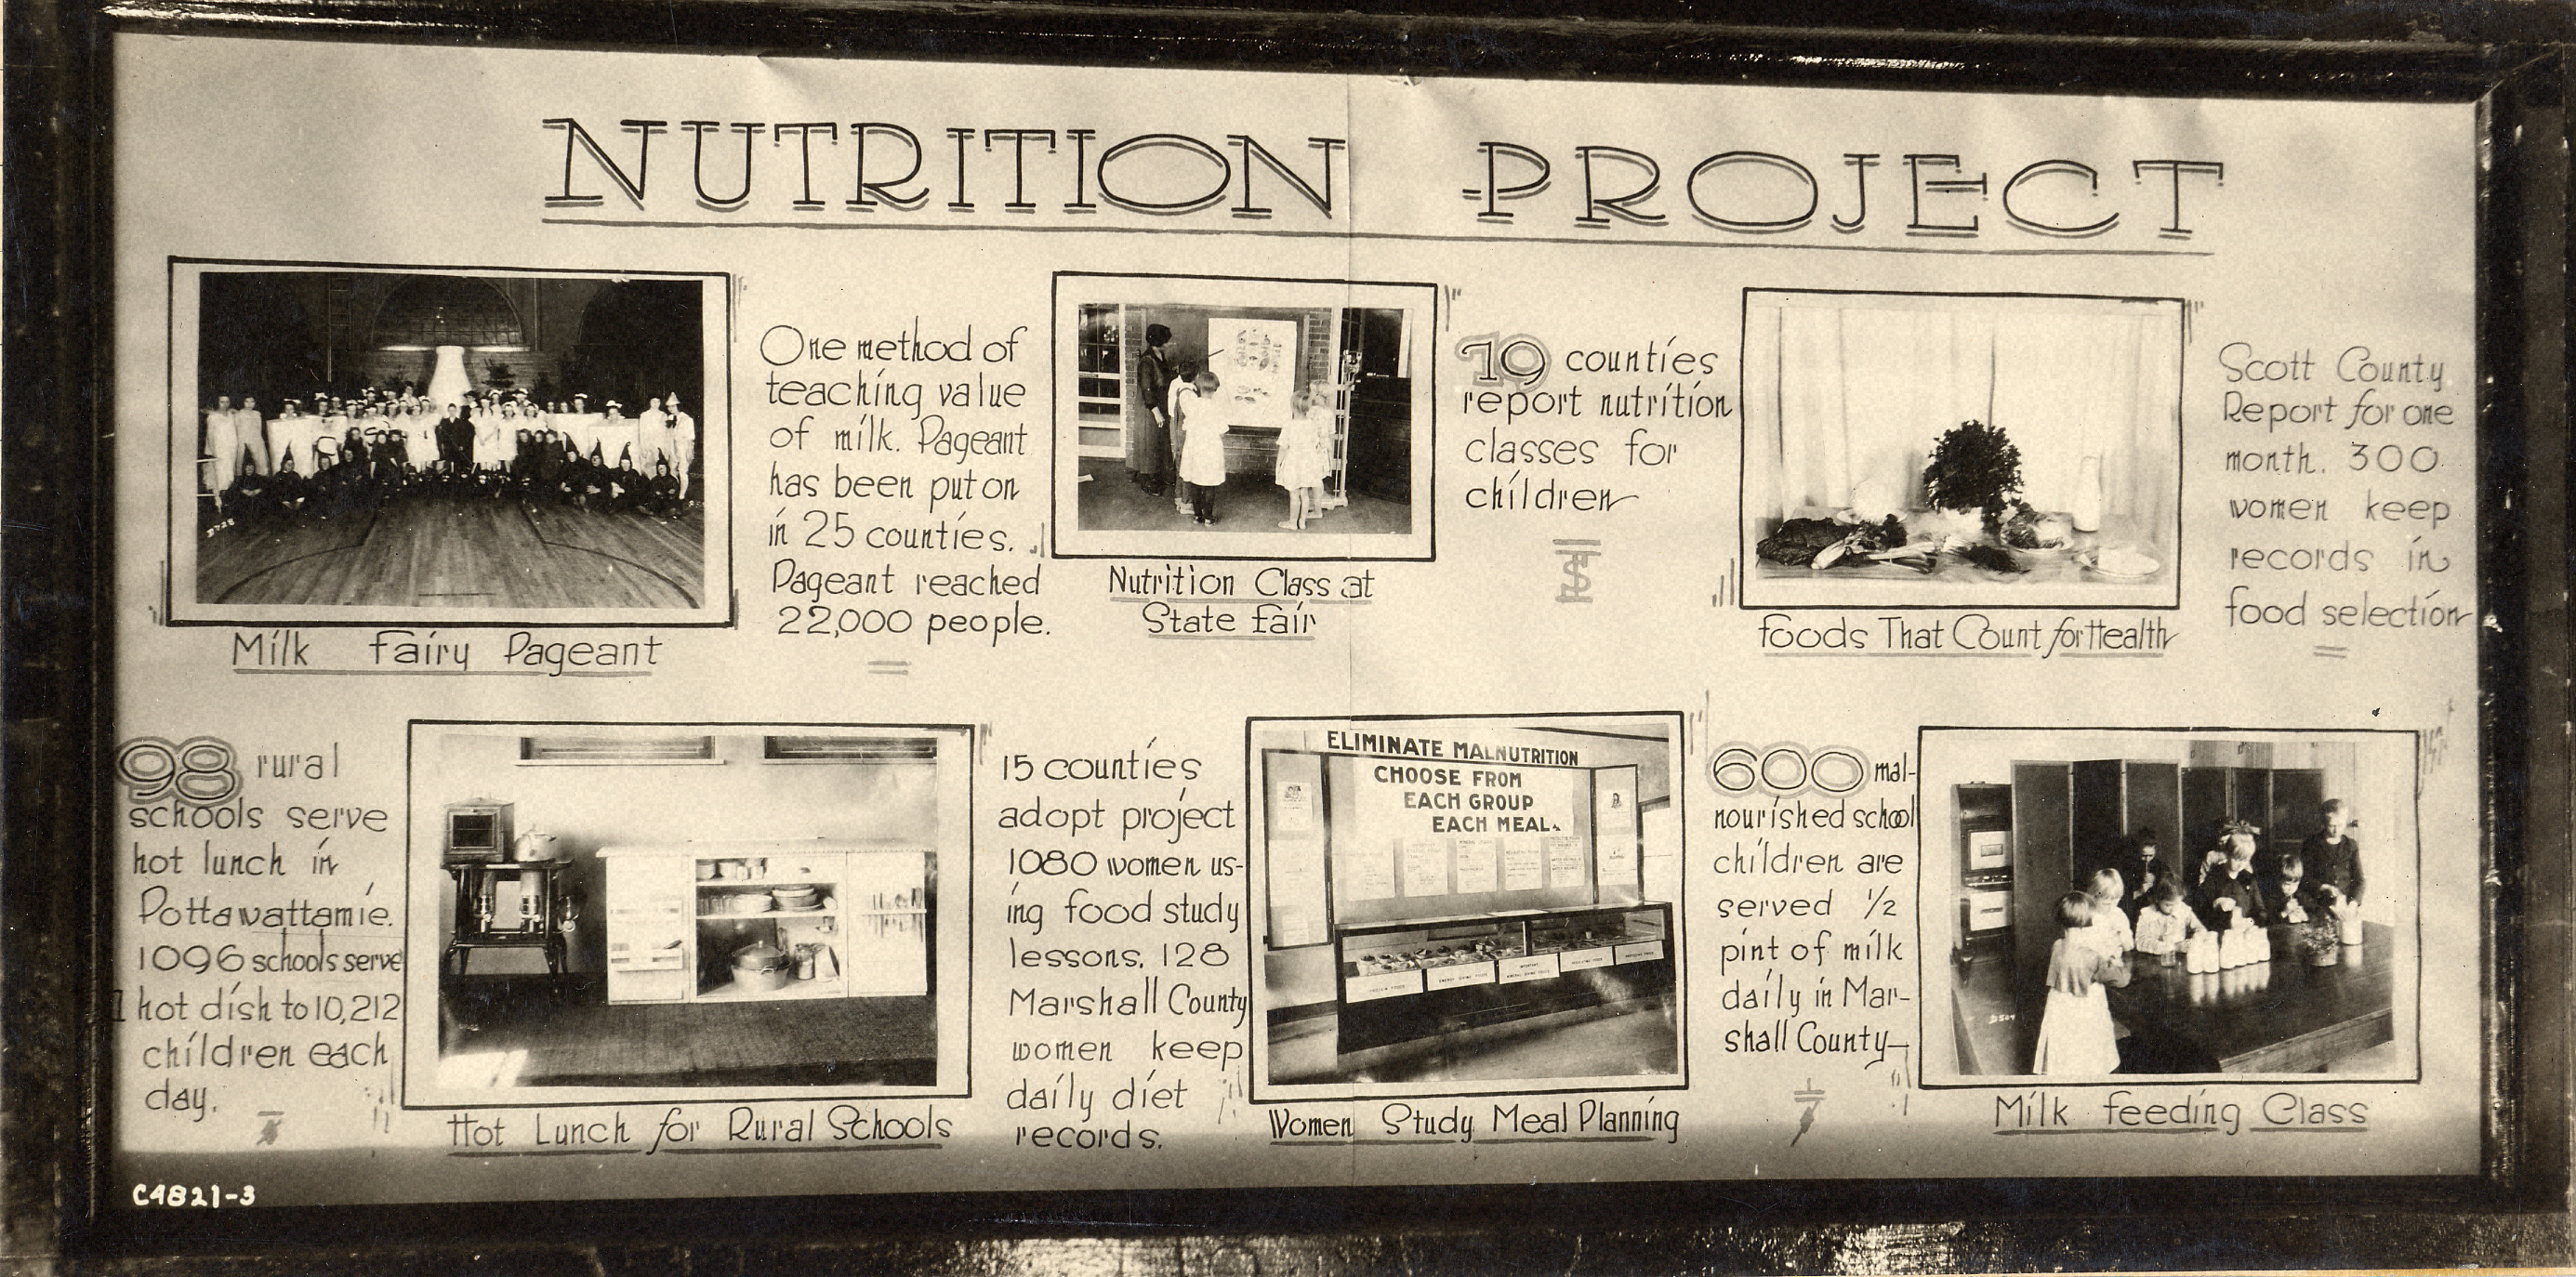 NUTRITION PROJECT
Milk Fairy Pageant
One method of
teaching value
of milk. Pageant
has been put on
in 25 counties.
Pageant reached
22,000 people.
Nutrition Class at
State Fair
19 counties
report nutrition
classes for
children
Foods That Count for Health
Scott County
Report for one
month. 300
women keep
records in
food selection
98 rural
schools serve
hot lunch in
Pottawattamie.
1096 schools serve
1 hot dish to 10,212
children each
day.
Hot Lunch for Rural Schools
15 counties
adopt project
1080 women us-
ing food study
lessons. 128
Marshall County
women keep
daily diet
records.
ELIMINATE MALNUTRITION
CHOOSE FROM
EACH GROUP
EACH MEAL.
Women Study Meal Planning
600 mal-
nourished school
children are
served 1/2
pint of milk
daily in Mar-
shall County
Milk Feeding Class
C4821-3